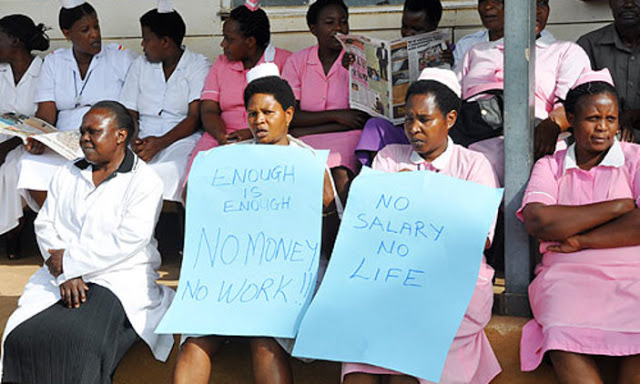 ENOUGH
IS
ENOUGH
NO MONEY
NO WORK!!
NO
SALARY
NO
LIFE